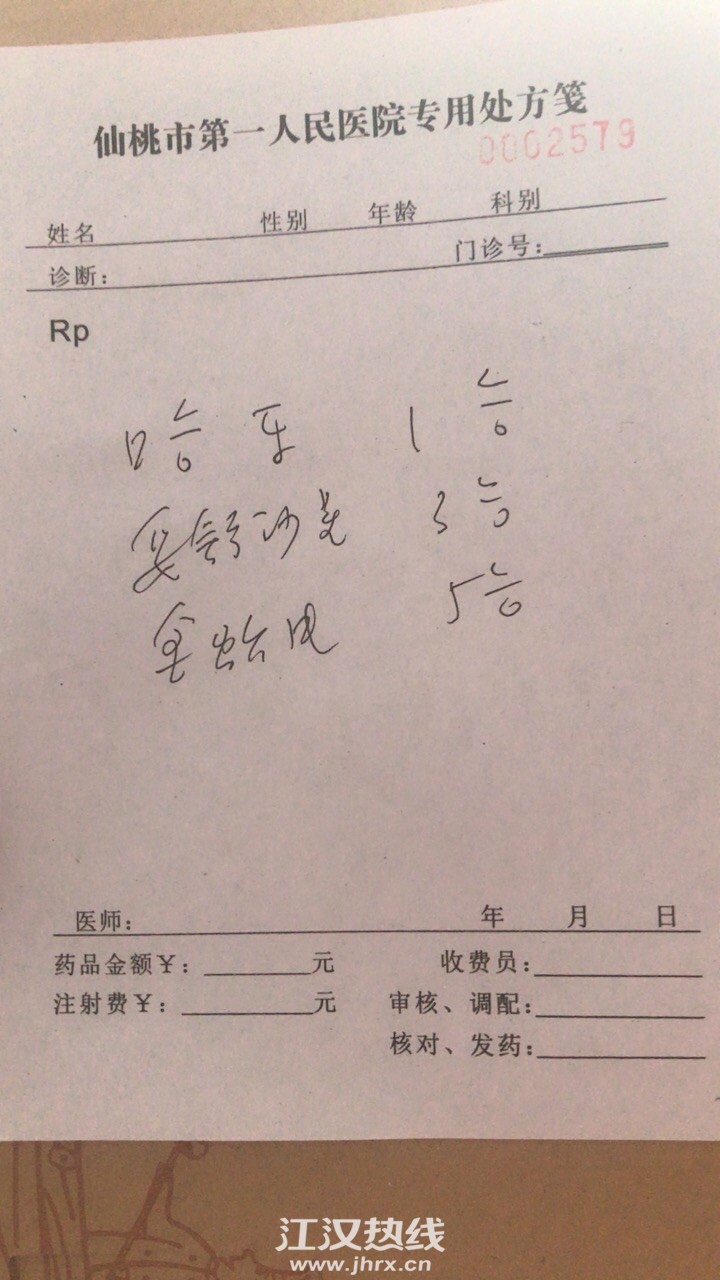 仙桃市第一人民医院专用处方笺
0002579
姓名 性别 年龄 科别
诊断： 门诊号：
Rp
哈乐 1合
安舒沙星 3合
金 5合
医师： 年 月 日
药品金额￥： 元 收费员：
注射费￥： 元 审核、调配：
核对、发药：
江汉热线
www.jhrx.cn